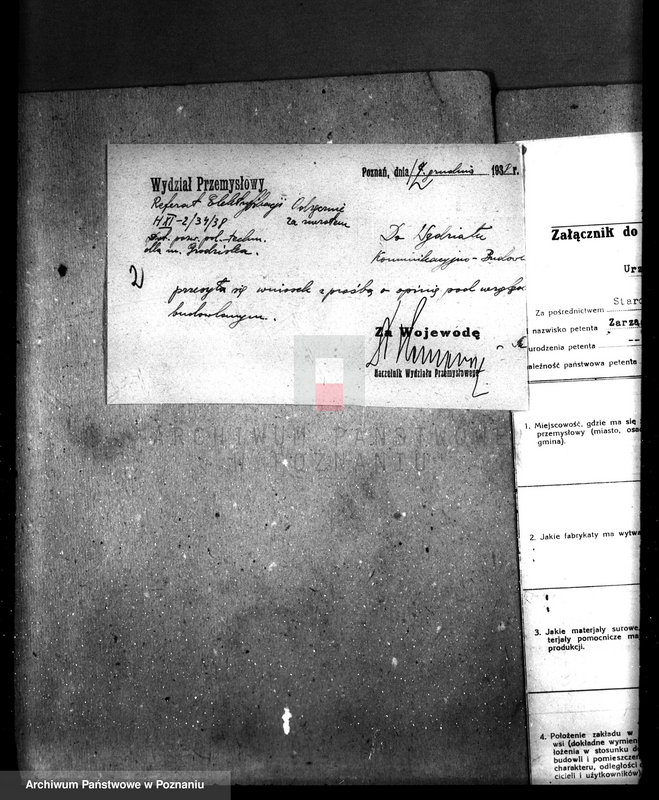 Wydział Przemysłowy
Referat Elektryfikacji
H XI-2/34/38
dla m. Grodziska.
Odręcznie
za zwrotem
Poznań, dnia 12 grudnia 193 r.
Do Wydziału
Komunikacyjno-Budowl
2) przesyła się wniosek z prośbą o opinię pod względem
budowlanym.
Za Wojewodę
Naczelnik Wydziału Przemysłowego
ARCHIWUM PAŃSTWOWE
W POZNANIU
Załącznik do
Urz
Za pośrednictwem Staro
nazwisko petenta Zarzą
urodzenia petenta --
ależność państwowa petenta
1. Miejscowość, gdzie ma się
przemysłowy (miasto, osad
gmina).
2. Jakie fabrykaty ma wytwa
3. Jakie materjały surowe,
terjały pomocnicze ma
produkcji.
4. Położenie zakładu w
wsi (dokładne wymien
łożenia w stosunku do
budowli i pomieszczeń
charakteru, odległości o
cicieli i użytkowników)
Archiwum Państwowe w Poznaniu